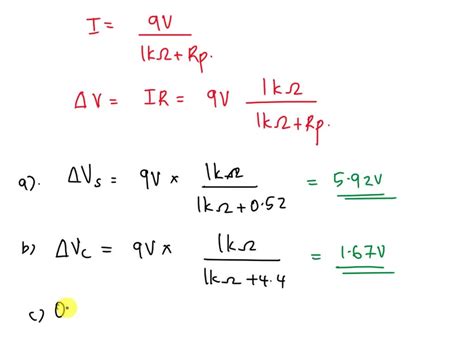 I = 9V / 1kΩ + Rp.
ΔV = IR = 9V 1kΩ / 1kΩ + Rp.
a). ΔVs = 9V × 1kΩ / 1kΩ + 0.52 = 5.92V
b) ΔVc = 9V × 1kΩ / 1kΩ + 4.4 = 1.67V
c) 0.